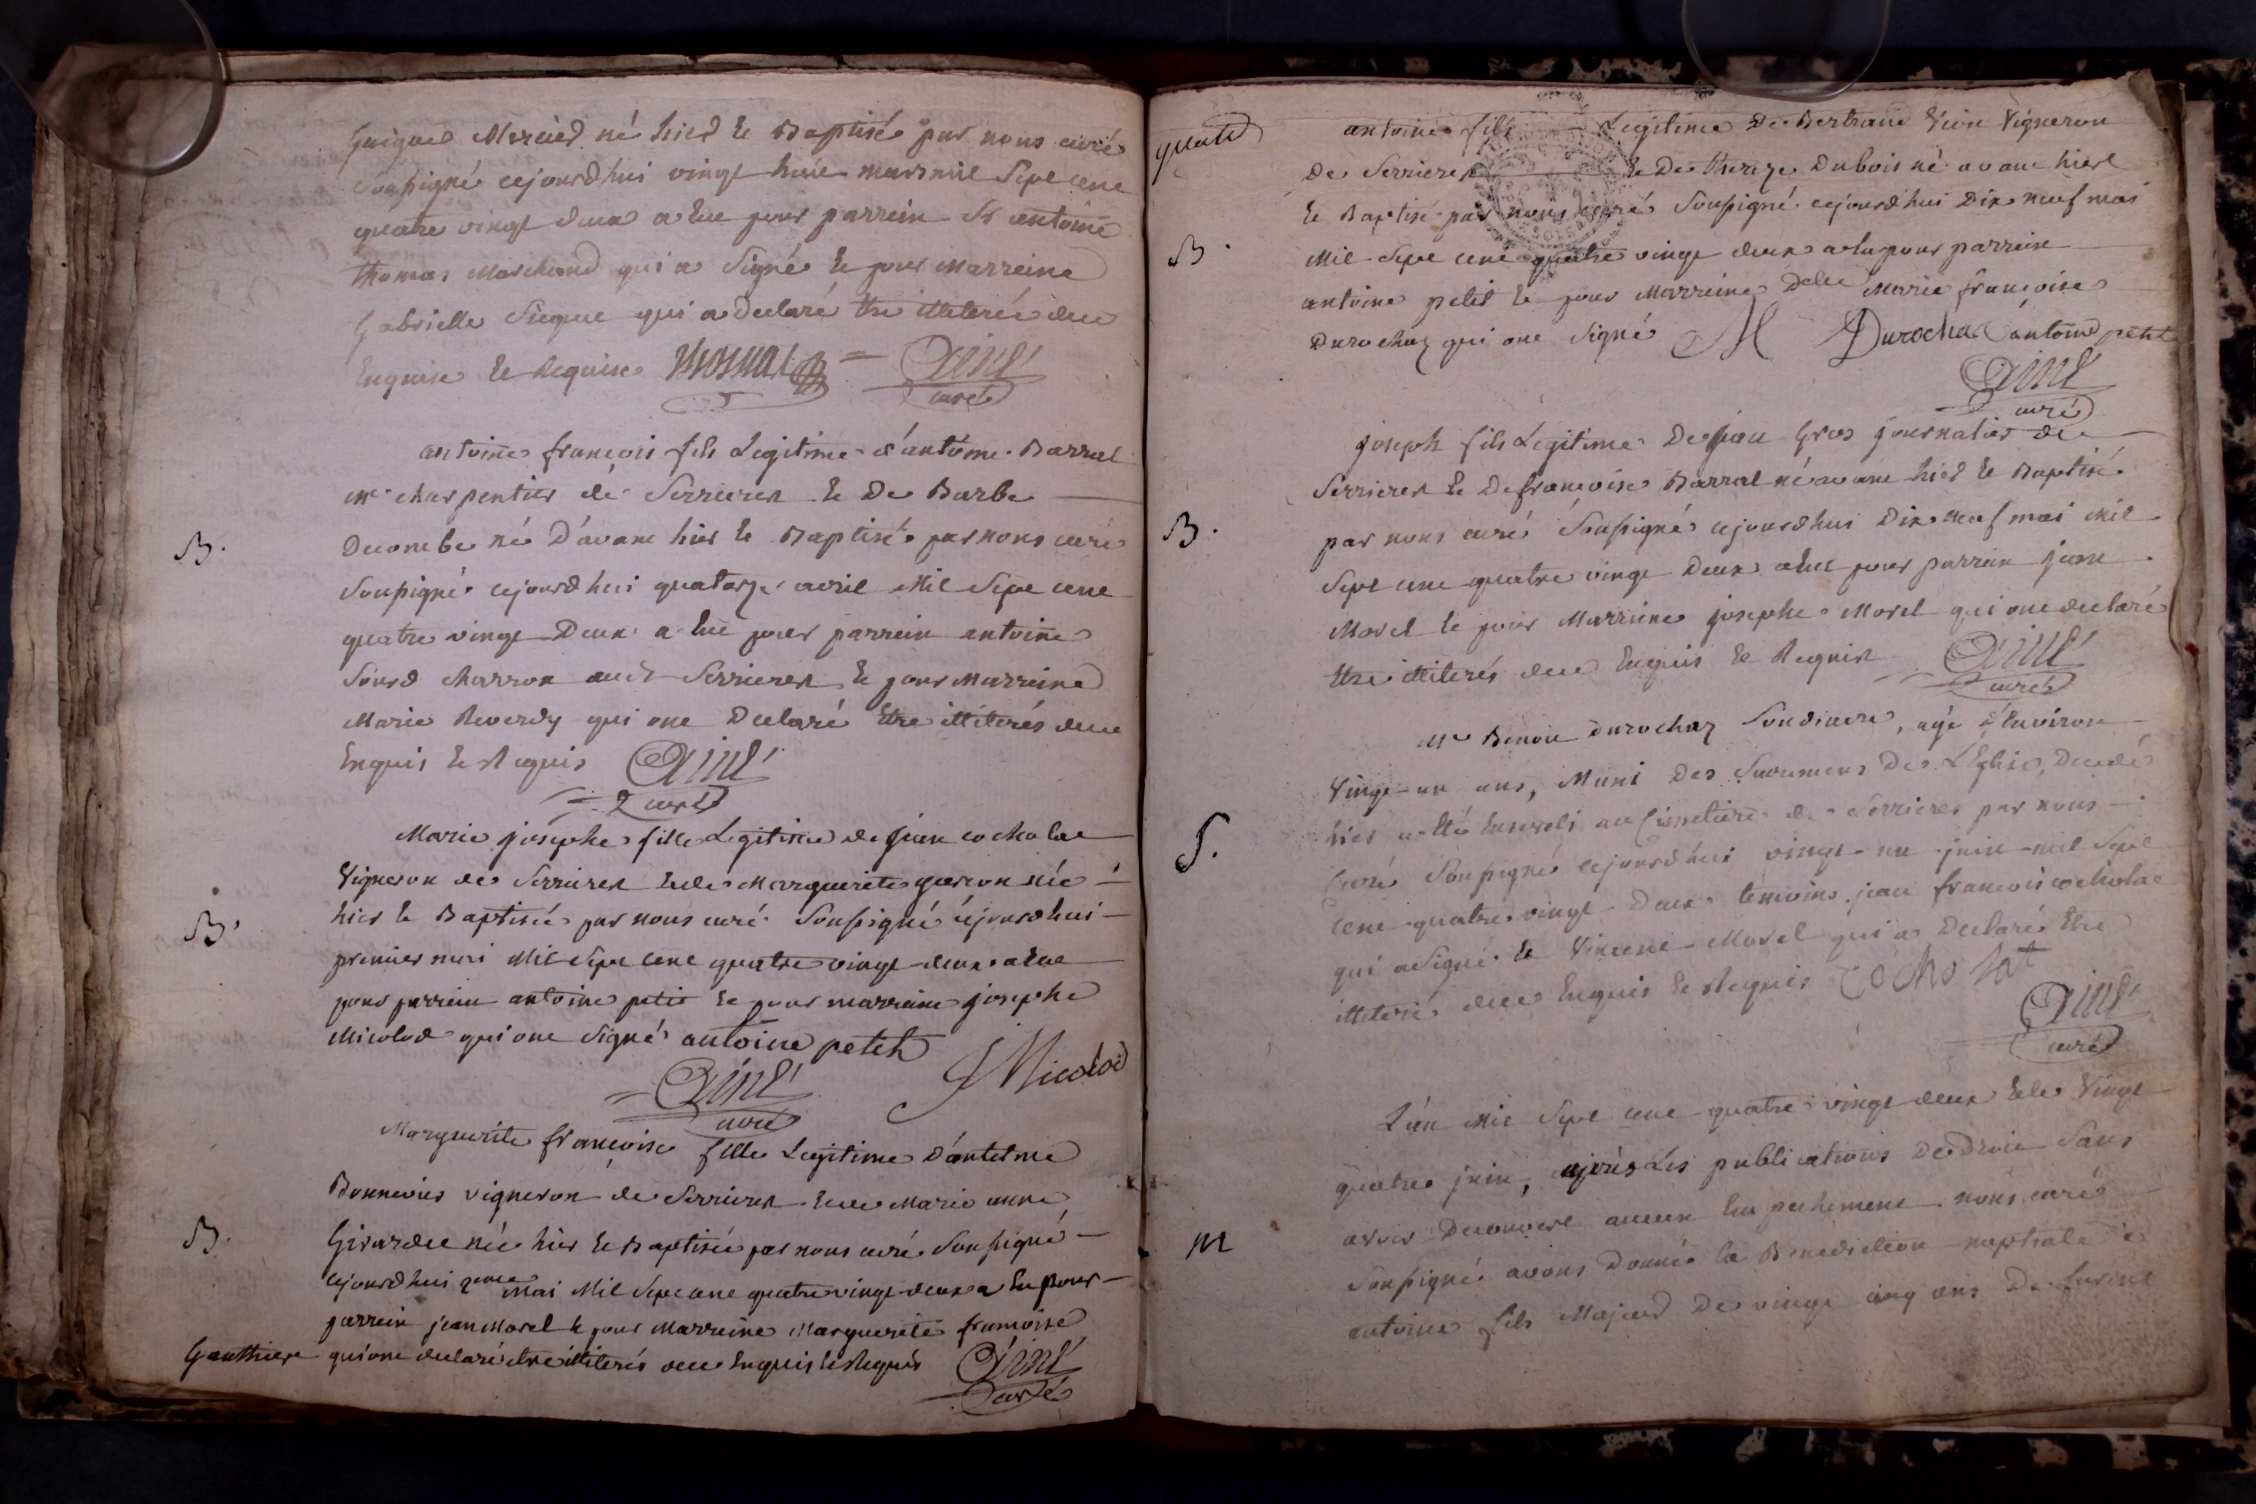 Guigue Mercier né hier et Baptisé par nous curé
soussigné cejourdhui vingt huit mars mil sept cent
quatre vingt deux a eu pour parrein Sr antoine
thomas Marchand qui a signé et pour marreine
Gabrielle qui a declaré etre illiterée de ce
Enquise et Requise Thomas Ainé
curé
antoine francois fils Legitime d'antoine Barral
me charpentier de Serrieres et De Barbe
Decombe né D'avant hier et Baptisé par nous curé
Soussigné cejourdhui quatorze avril Mil Sept cent
quatre vingt Deux a eu pour parrein antoine
Sourd charron aud Serrieres et pour Marreine
Marie Reverdy qui ont Declaré etre illiterés de ce
Enquis et Requis Ainé
curé
B.
Marie josephe fille Legitime de jean cocholat
Vigneron de Serrieres et de Marguerite garcon née
hier et Baptisée par nous curé Soussigné cejourdhui
premier mai Mil Sept cent quatre vingt deux a eue
pour parrein antoine petit et pour marreine josephe
Micolod qui ont Signé antoine petit
J Micolod
Ainé
curé
B.
Marguerite francoise fille Legitime D'antelme
Bonnevies vigneron de Serrieres et de Marie anne
Girardet née hier et Baptisée par nous curé Soussigné
cejourdhui 2eme Mai Mil Sept cent quatre vingt deux a Eu pour
parrein jean Morel et pour Marreine Marguerite francoise
Gauthier qui ont declaré etre illiterés de ce Enquis et Requis Ainé
curé
B.
quatre
antoine fils Legitime De Bertrand Vigneron
De Serrieres et De Thereze Dubois né avant hier
et Baptisé par nous curé Soussigné cejourdhui Dix neuf mai
Mil Sept cent quatre vingt deux a eu pour parrein
antoine petit et pour Marreine Delle Marie francoise
Durochaz qui ont Signé M Durochat antoine petit
Ainé
curé
B.
joseph fils Legitime De jean Gros journalier de
Serrieres et De francoise Barral né avant hier et Baptisé
par nous curé Soussigné cejourdhui Dix neuf mai Mil
Sept cent quatre vingt Deux a eu pour parrein jean
Morel et pour Marreine josephe Morel qui ont declaré
etre illiterés de ce Enquis et Requis Ainé
curé
B.
Mr Benoit Durochaz Soudiacre, agé d'Environ
Vingt un ans, Muni Des Sacremens De L'Eglise, Decedé
hier a eté Enseveli au Cimetiere de Serrieres par nous
Curé Soussigné cejourdhui vingt un juin mil Sept
cent quatre vingt Deux temoins jean francois cochola
qui a signé et Vincent Morel qui a Declaré etre
illiteré de ce Enquis et Requis Cocholat
Ainé
curé
S.
L'an Mil Sept cent quatre vingt deux et le Vingt
quatre juin, après Les publications De Droit Sans
avoir Decouvert aucun Empechement nous curé
Soussigné avons Donné la Benediction nuptiale à
antoine fils Majeur De vingt cinq ans De
M